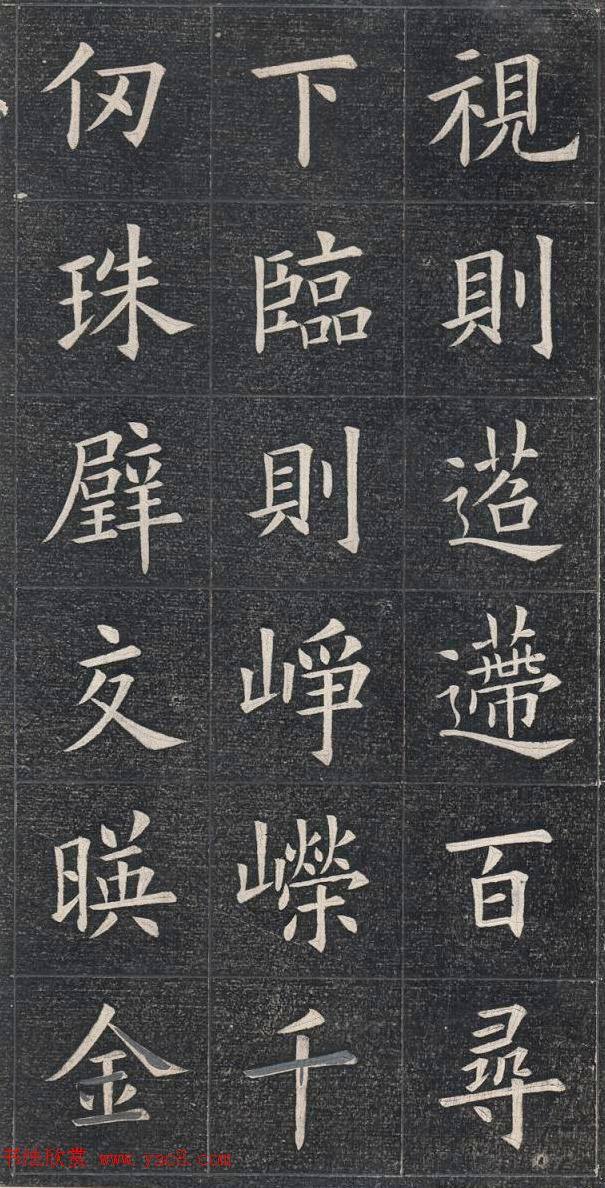 視則迢遰百尋
下臨則崢嶸千
仞珠壁交暎金
书绘欣赏 www.yac8.com